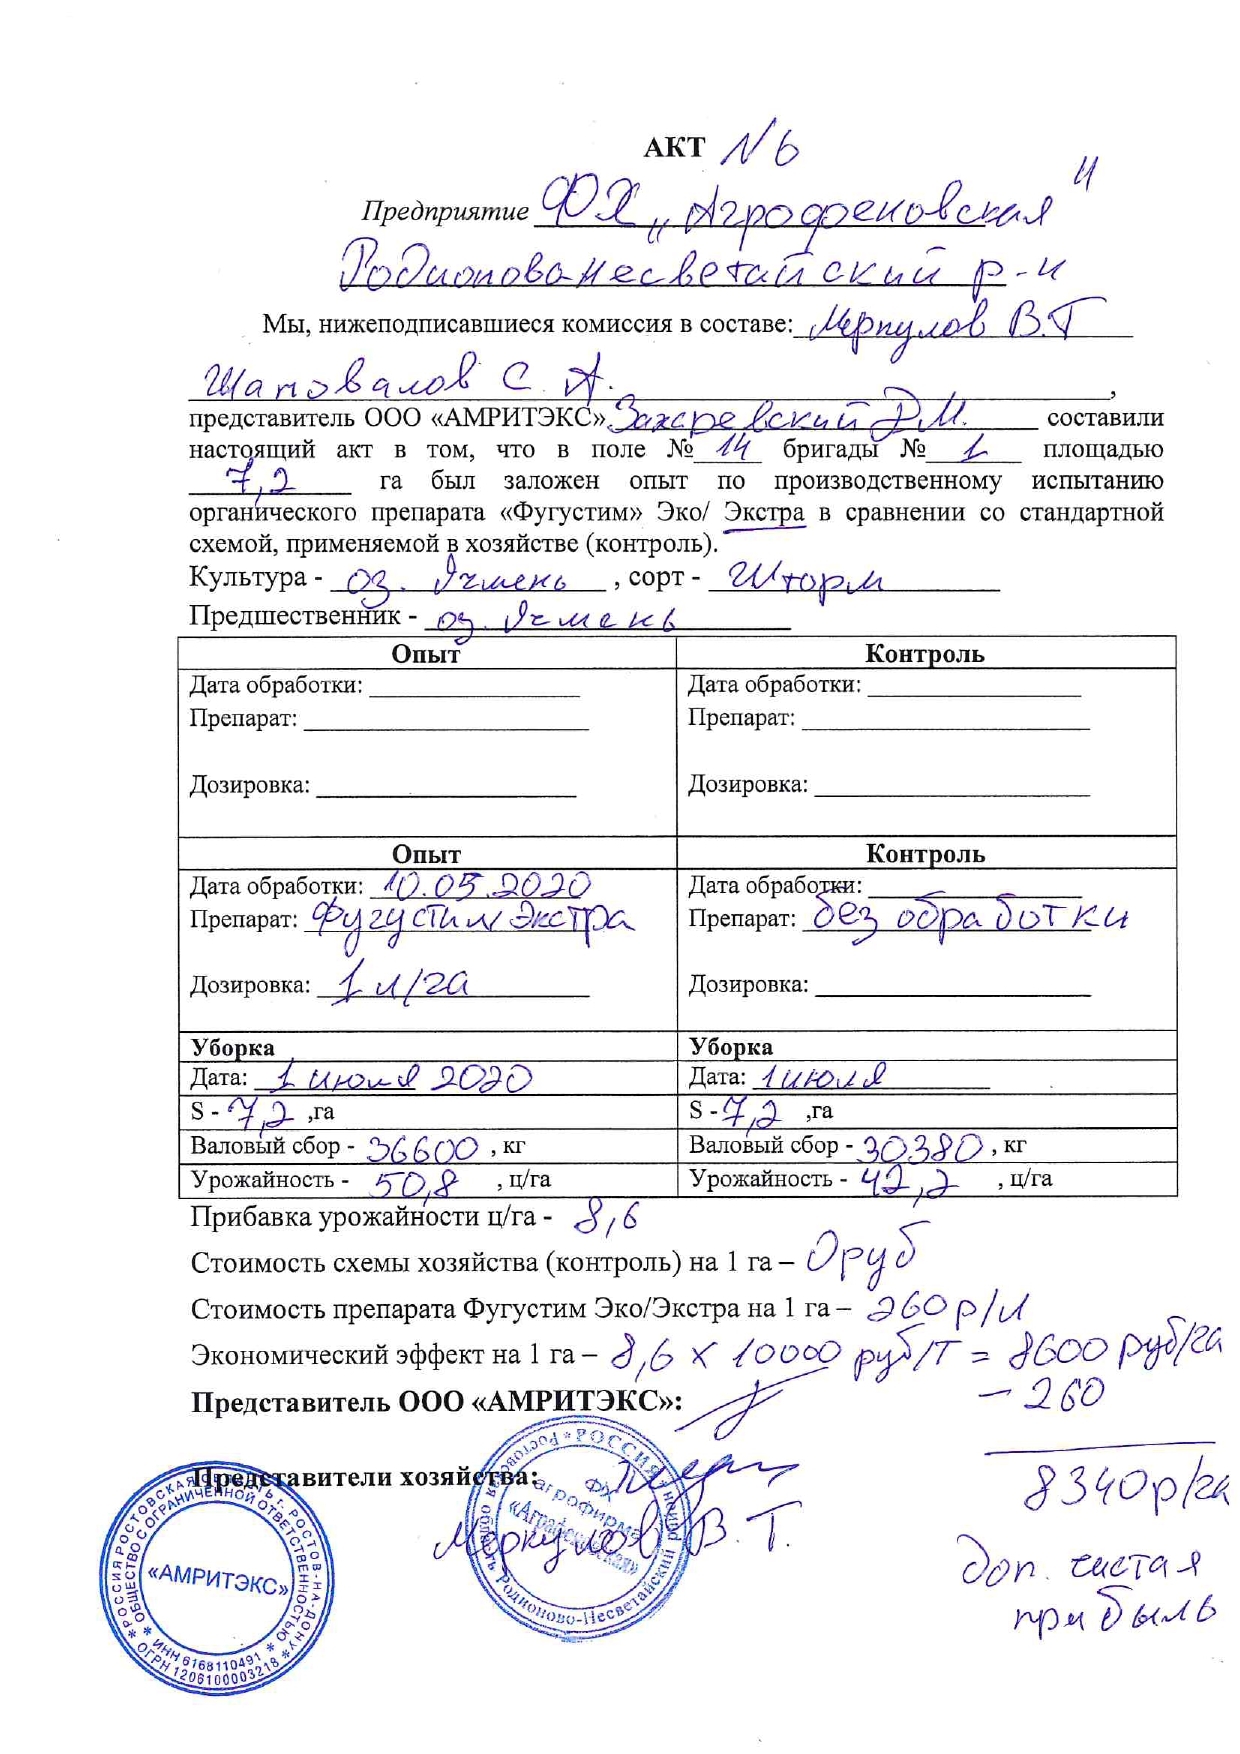 АКТ N 6
Предприятие ФХ „Агрофеновская"
Родионованесветайский р-н
Мы, нижеподписавшиеся комиссия в составе: Меркулов В.Г
Шаповалов С. А.,
представитель ООО «АМРИТЭКС» Захаревский Д.М. составили
настоящий акт в том, что в поле № 14 бригады № 1 площадью
7,2 га был заложен опыт по производственному испытанию
органического препарата «Фугустим» Эко/ Экстра в сравнении со стандартной
схемой, применяемой в хозяйстве (контроль).
Культура - оз. Ячмень , сорт - Шторм
Предшественник - оз. Ячмень
Опыт Контроль
Дата обработки: Дата обработки:
Препарат: Препарат:
Дозировка: Дозировка:
Опыт Контроль
Дата обработки: 10.05.2020 Дата обработки:
Препарат: Фугустим Экстра Препарат: без обработки
Дозировка: 1 л/га Дозировка:
Уборка Уборка
Дата: 1 июля 2020 Дата: 1 июля
S - 7,2 ,га S - 7,2 ,га
Валовый сбор - 36600 , кг Валовый сбор - 30380 , кг
Урожайность - 50,8 , ц/га Урожайность - 42,2 , ц/га
Прибавка урожайности ц/га - 8,6
Стоимость схемы хозяйства (контроль) на 1 га – 0 руб
Стоимость препарата Фугустим Эко/Экстра на 1 га – 260 р/л
Экономический эффект на 1 га – 8,6 х 10000 руб/т = 8600 руб/га
Представитель ООО «АМРИТЭКС»: – 260
Представители хозяйства:
8340 р/га
Меркулов В. Г.
доп. чистая
прибыль
РОССИЯ РОСТОВСКАЯ ОБЛАСТЬ г. РОСТОВ-НА-ДОНУ
ОБЩЕСТВО С ОГРАНИЧЕННОЙ ОТВЕТСТВЕННОСТЬЮ
«АМРИТЭКС»
ИНН 6168110491
ОГРН 1206100003218
РОССИЯ Ростовская область Родионово-Несветайский район
ФХ
агрофирма